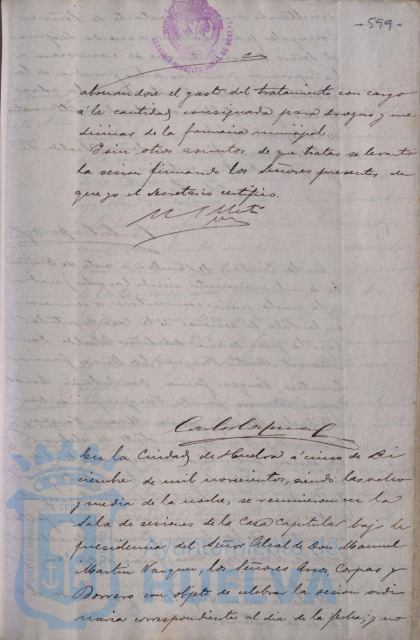 -599-
abonandose el gasto del tratamiento con cargo
á la cantidad consignada para drogas y me
dicinas de la farmacia municipal.
Y sin otros asuntos de que tratar se levantó
la sesion firmando los Señores presentes de
que yo el Secretario certifico.
En la Ciudad de Huelva á cinco de Di
ciembre de mil novecientos, siendo las ocho
y media de la noche, se reunieron en la
Sala de sesiones de la Casa Capitular bajo la
presidencia del Señor Alcalde Don Manuel
Martin Vazquez, los Señores Garcia Copas y
Borrero con objeto de celebrar la sesion ordi
naria correspondiente al dia de la fecha; y no
Ayuntamiento de
HUELVA